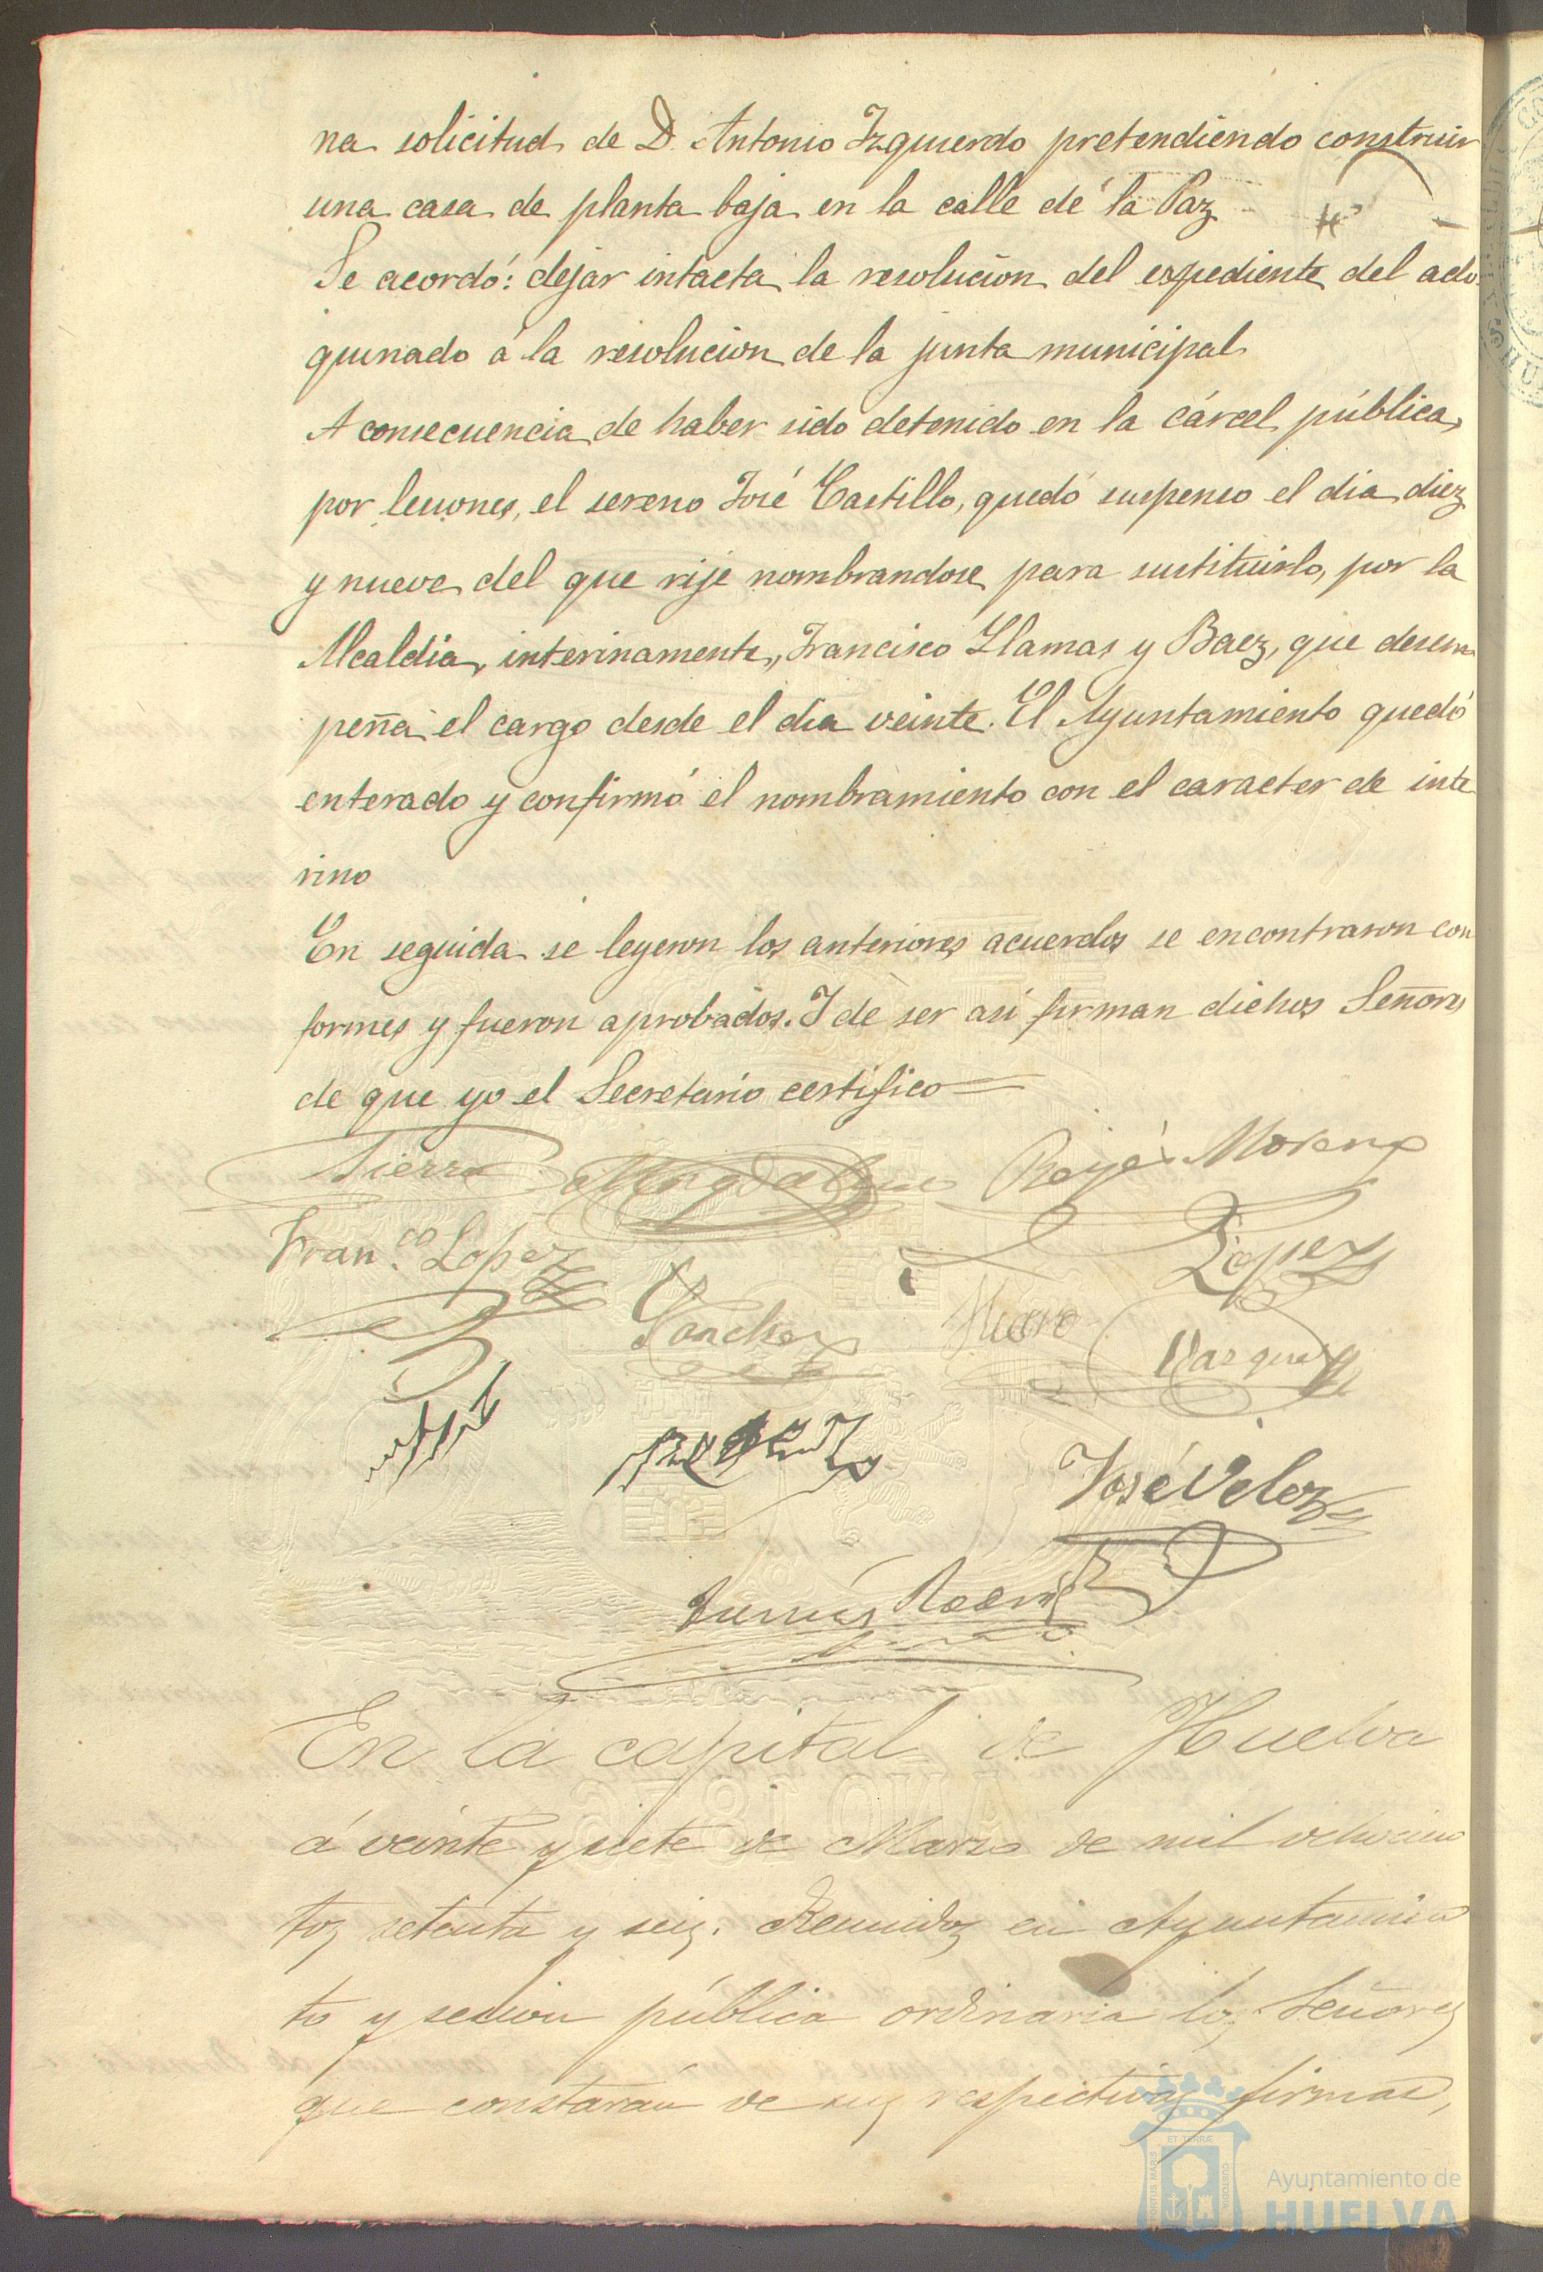 na solicitud de D. Antonio Izquierdo pretendiendo construir
una casa de planta baja en la calle de la Paz
Se acordó: dejar intacta la resolucion del espediente del ado
quinado á la resolucion de la junta municipal
A consecuencia de haber sido detenido en la cárcel pública,
por lesiones, el sereno José Castillo, quedó suspenso el dia diez
y nueve del que rije nombrandose para sustituirlo, por la
Alcaldia, interinamente, Francisco Llamas y Baez, que desem
peña el cargo desde el dia veinte. El Ayuntamiento quedó
enterado y confirmó el nombramiento con el caracter de inte
rino
En seguida se leyeron los anteriores acuerdos se encontraron con
formes y fueron aprobados. I de ser asi firman dichos Señores
de que yo el Secretario certifico
Sierra Magdalena Reyes Moreno
Fran.co Lopez Lopez
Sanchez Vazquez
José Velez
En la capital de Huelva
á veinte y siete de Marzo de mil ochocien
tos setenta y seis. Reunidos en Ayuntamien
to y sesion pública ordinaria los Señores
que constarán de sus respectivas firmas,
AÑO 1876
Ayuntamiento de
HUELVA